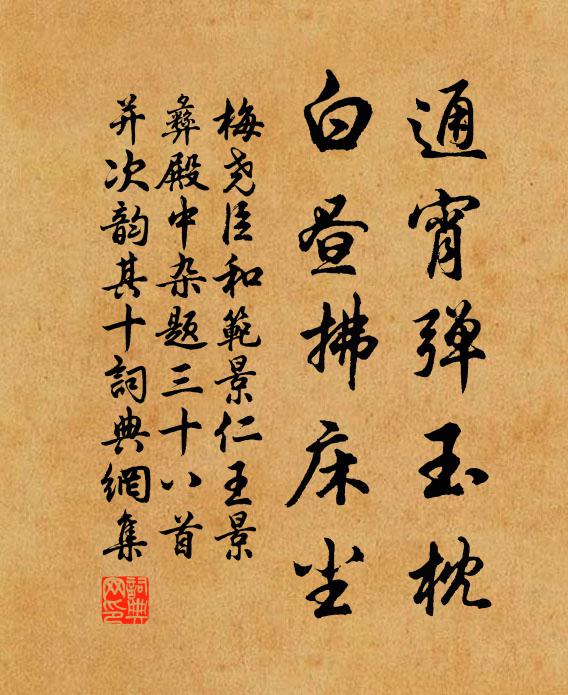 通宵弹玉枕
白昼拂床尘
梅尧臣和範景仁王景
彝殿中杂题三十八首
并次韵其十詞典網集
詞典網印